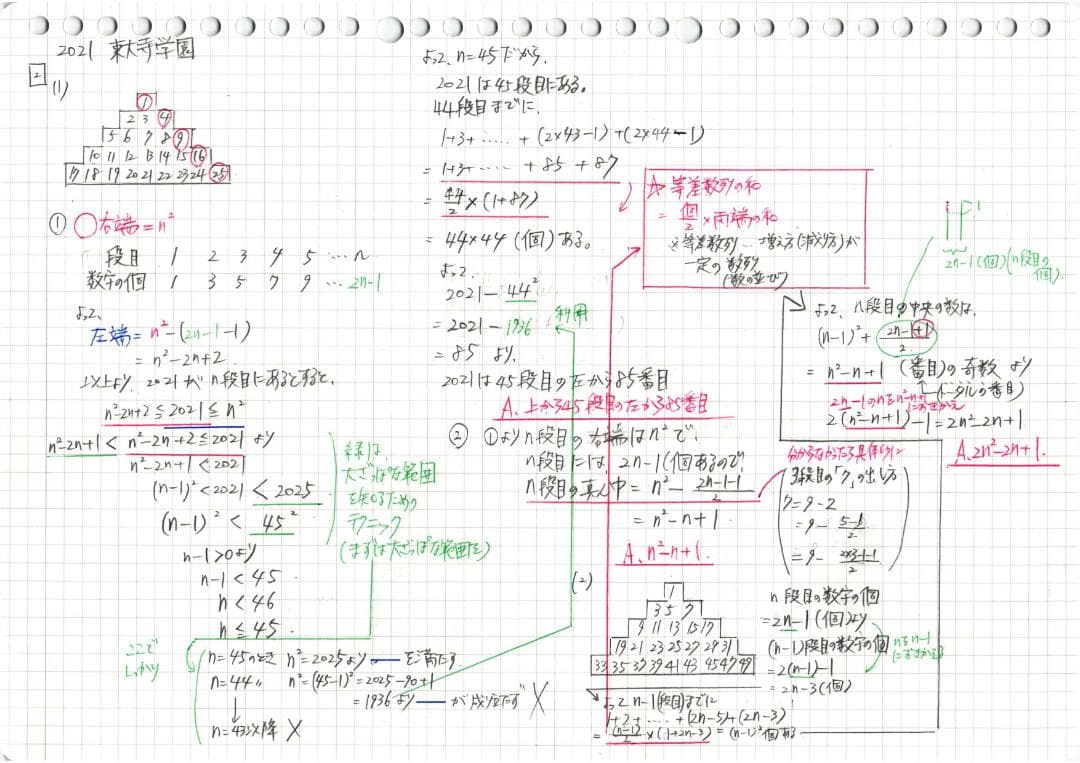 2021 東大寺学園
2
(1)
1
2 3 4
5 6 7 8 9
10 11 12 13 14 15 16
17 18 19 20 21 22 23 24 25
① ○右端=n²
段目 1 2 3 4 5 … n
数字の個 1 3 5 7 9 … 2n-1
よって、
左端=n²-(2n-1-1)
=n²-2n+2.
以上より、2021がn段目にあるとすると、
n²-2n+2≦2021≦n²
n²-2n+1<n²-2n+2≦2021 より
n²-2n+1<2021
(n-1)²<2021<2025
(n-1)²<45²
n-1>0より
n-1<45
n<46
n≦45.
緑は、
大ざっぱな範囲
を知るための
テクニック
(まずは大ざっぱな範囲を)
ここで
しっかり
n=45のとき n²=2025より を満たす
n=44〃 n²=(45-1)²=2025-90+1
=1936より が成り立たず X
n=43以降 X
よって、n=45だから、
2021は45段目にある。
44段目までに、
1+3+……+(2×43-1)+(2×44-1)
=1+3+……+85+87
=44/2×(1+87)
=44×44(個)ある。
よって、
2021-44²
=2021-1936 利用
=85 より、
2021は45段目の左から85番目
A. 上から45段目の左から85番目
☆等差数列の和
=個/2×両端の和
※等差数列…増え方(減り方)が
一定の数列
(数の並び)
② ①よりn段目の右端はn²で、
n段目には、2n-1(個)あるので、
n段目の真ん中=n²-(2n-1-1)/2
=n²-n+1.
A. n²-n+1.
分からなかったら具体的に
3段目の「7」の出し方
7=9-2
=9-(5-1)/2
=9-(2×3-1-1)/2
(2)
1
3 5 7
9 11 13 15 17
19 21 23 25 27 29 31
33 35 37 39 41 43 45 47 49
n段目の数字の個
=2n-1(個)より
(n-1)段目の数字の個
=2(n-1)-1
=2n-3(個)
nをn-1
におきかえる
よってn-1(段目)までに
1+3+……+(2n-5)+(2n-3)
=(n-1)/2×(1+2n-3)=(n-1)²個ある
2n-1(個)(n段目の個)
よって、n段目の中央の数は、
(n-1)²+(2n-1+1)/2
=n²-n+1(番目)の奇数 より
(トータルの番目)
2n-1のnをn²-n+1におきかえて
2(n²-n+1)-1=2n²-2n+1
A. 2n²-2n+1.